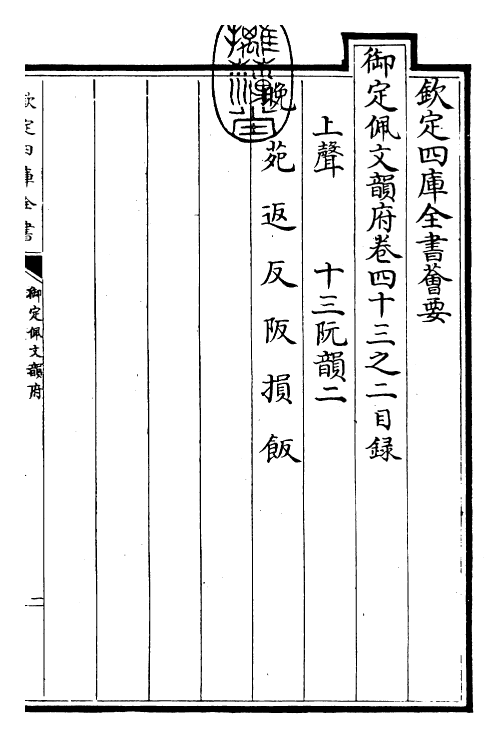 欽定四庫全書薈要
御定佩文韻府卷四十三之二目錄
上聲 十三阮韻二
晚 苑 返 反 阪 損 飯
欽定四庫全書
御定佩文韻府
二